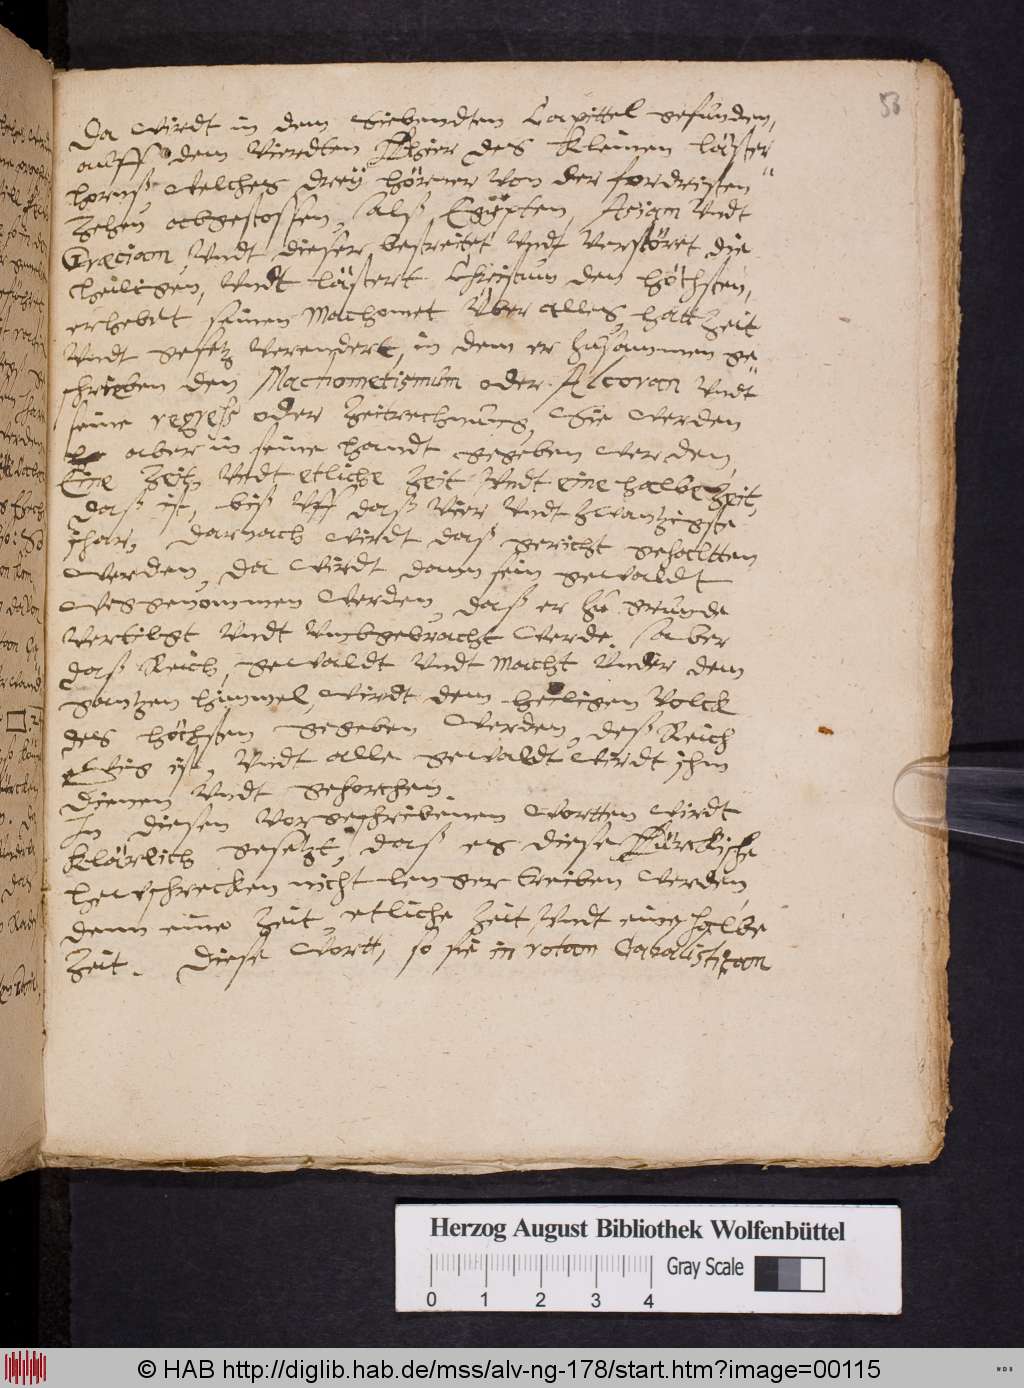 53
Da wirdt in dem Siebendten Capittel gefunden,
auff dem vierdten Thier des kleinen läster
horns, welches dreÿ hörner von der fordristen
Zehen abgestossen, als Egipten, Asiam undt
Græciam, undt dieser bestreitet undt verstöret die
heiligen, undt lästert Christum den höchsten,
erhebet seinen Machomet über alles hatt Zeit
undt gesetz verendert, in dem er zusammen ge
schrieben den Machometismum oder Alcoran undt
seine oder Zeitrechnung, Sie werden
aber in seine handt gegeben werden,
Eine Zeit, undt etliche Zeit undt eine halbe Zeit,
das ist, biß uff daß vier undt zwantzigste
jhar, darnach wirdt daß gericht gehaltten
werden, da wirdt dann sein gewaldt
weggenommen werden, daß er zu grunde
vertilgt undt umbgebracht werde, aber
daß Reich, gewaldt undt Macht under dem
gantzen himmel, wirdt dem heiligen Volck
des höchsten gegeben werden, deß Reich
ewig ist, undt alle gewaldt wirdt jhm
dienen undt gehorchen.
In diesen vorgeschriebenen wortten wirdt
klärlich gesetzt, daß es diese Türckische
hewschrecken nicht lenger treiben werden,
denn eine Zeit, etliche Zeit undt eine halbe
Zeit. Diese wortt, so sie in rotam Cabalisticam
Herzog August Bibliothek Wolfenbüttel
Gray Scale
0 1 2 3 4
© HAB http://diglib.hab.de/mss/alv-ng-178/start.htm?image=00115